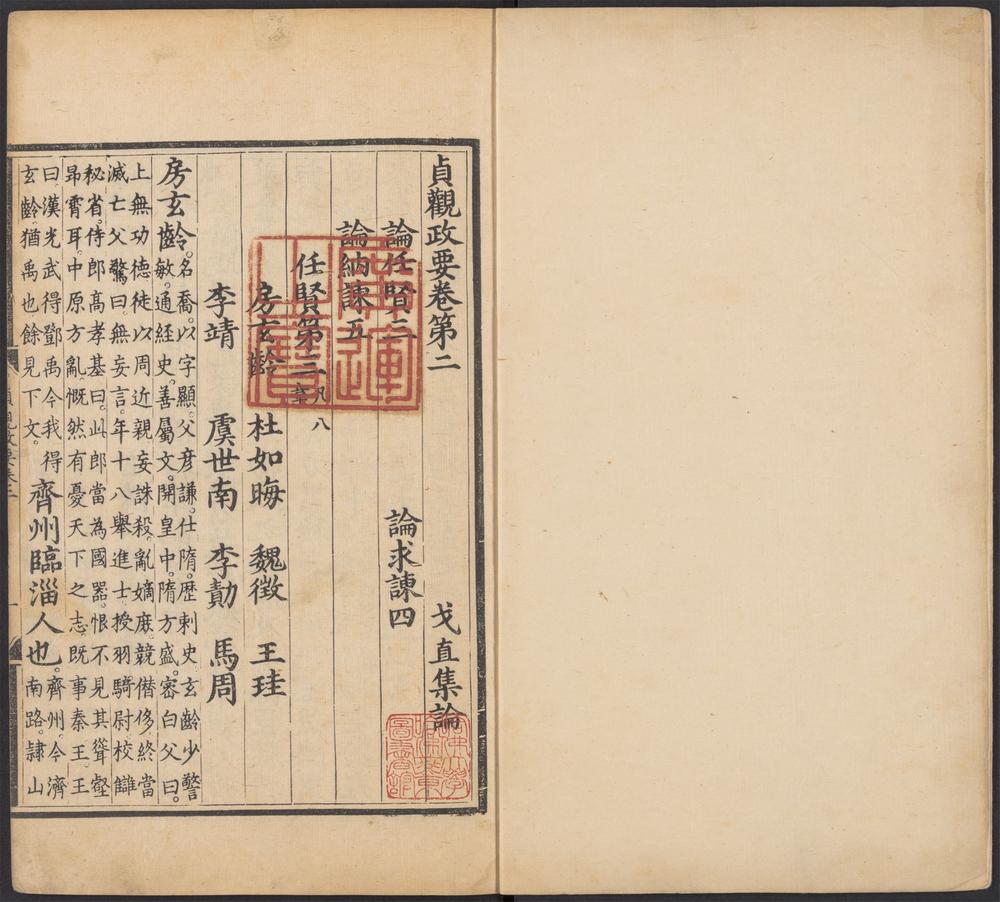 貞觀政要卷第二　戈直集論
論任賢三　論求諫四
論納諫五
任賢第三凡八章
房玄齡　杜如晦　魏徵　王珪
李靖　虞世南　李勣　馬周
房玄齡。名喬。以字顯。父彦謙。仕隋。歷刺史玄齡少警
敏。通經史。善屬文。開皇中。隋方盛。密白父曰。
上無功德徒以周近親妄誅殺。亂嫡庶競僣侈終當
滅亡父驚曰。無妄言。年十八舉進士授羽騎尉校讎
秘省。侍郎髙孝基曰。此郎當為國器。恨不見其聳壑
昻霄耳。中原方亂。慨然有憂天下之志。既事秦王。王
曰。漢光武得鄧禹今我得
玄齡。猶禹也餘見下文。
齊州臨淄人也。齊州。今濟
南路。隷山